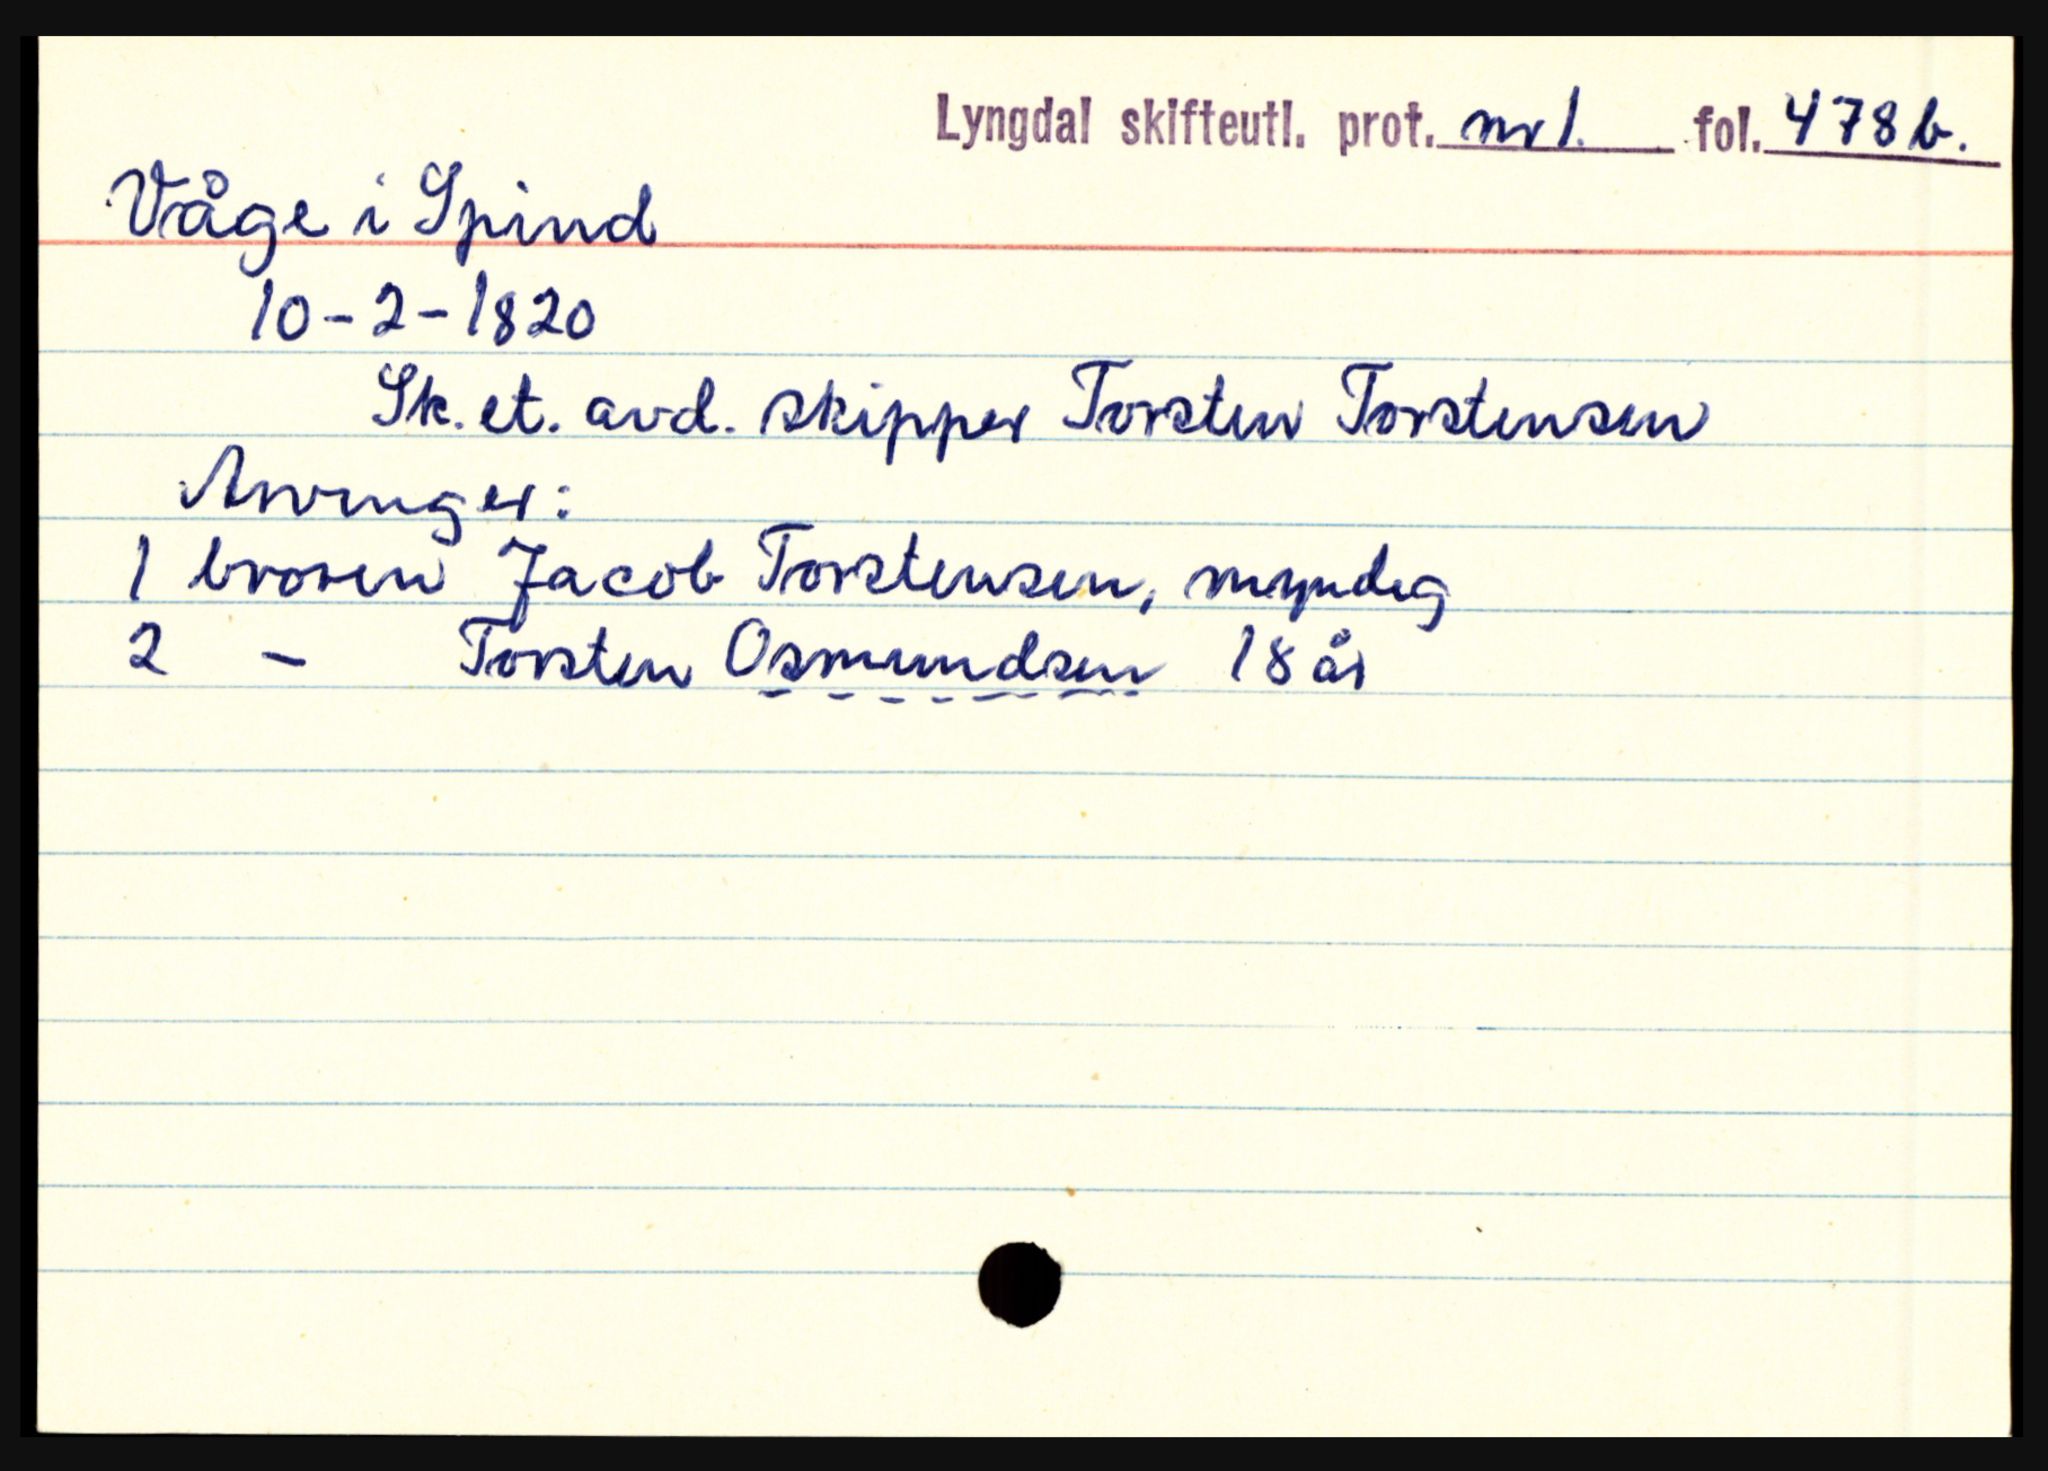 Lyngdal skifteutl. prot. nr 1. fol. 478 b.
Våge i Spind
10-2-1820
Sk. et. avd. skipper Torsten Torstensen
Arvinger:
1 broren Jacob Torstensen, myndig
2 - Torsten Osmundsen 18 år